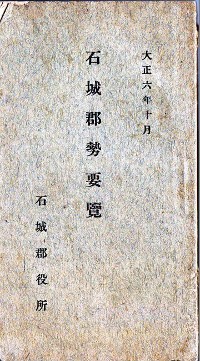 大正六年十月
石城郡勢要覽
石城郡役所